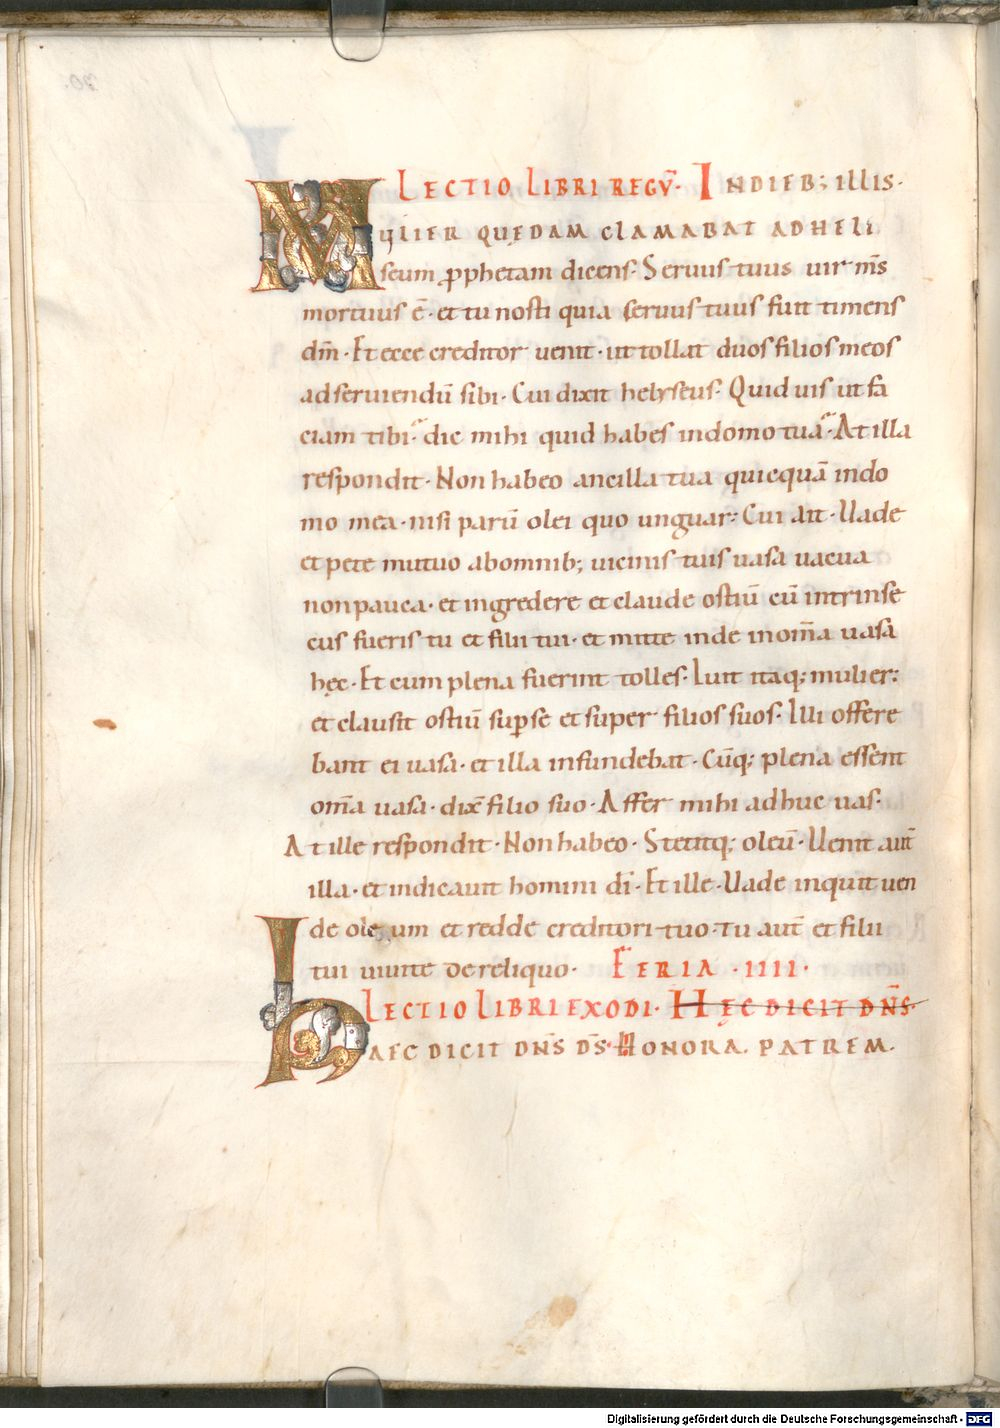 LECTIO LIBRI REGŪ· INDIEB; ILLIS·
MULIER QUĘDAM CLAMABAT ADHELI
seum ꝓphetam dicens· Seruus tuus uir m̄s
mortuus ē· et tu nosti quia seruus tuus fuit timens
dm̄· Et ecce creditor uenit· ut tollat duos filios meos
ad seruiendū sibi· Cui dixit helyseus· Quid uis ut fa
ciam tibi· dic mihi quid habes in domo tua· At illa
respondit· Non habeo ancilla tua quicquā in do
mo mea· nisi parū olei quo unguar· Cui ait· Uade
et pete mutuo ab omnib; uicinis tuis uasa uacua
non pauca· et ingredere et claude ostiū cū intrinse
cus fueris tu et filii tui· et mitte inde in om̄a uasa
hęc· Et cum plena fuerint tolles· Iuit itaq; mulier:
et clausit ostiū sup se et super filios suos· Illi offere
bant ei uasa· et illa infundebat· Cūq; plena essent
om̄a uasa· dix̄ filio suo· Affer mihi adhuc uas·
At ille respondit· Non habeo· Stetitq; oleū· Uenit aut̄
illa· et indicauit homini dī· Et ille· Uade inquit uen
de oleum et redde creditori tuo· tu aut̄ et filii
tui uiuite de reliquo· FERIA ·IIII·
LECTIO LIBRI EXODI· HĘC DICIT DN̄S·
HAEC DICIT DN̄S D̄S· HONORA· PATREM·
Digitalisierung gefördert durch die Deutsche Forschungsgemeinschaft - DFG